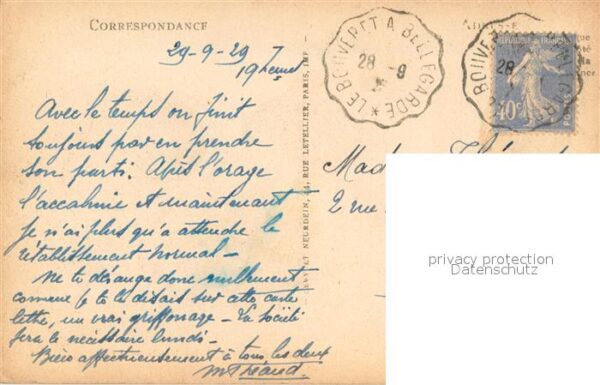 CORRESPONDANCE
29-9-29
19 heures
Avec le temps on finit
toujours par en prendre
son parti. Après l'orage
l'accalmie et maintenant
je n'ai plus qu'à attendre le
rétablissement normal -
Ne te dérange donc nullement
comme je te le disais sur cette carte
lettre, un vrai griffonnage - La société
fera le nécessaire lundi -
Bien affectueusement à tous les deux
LE BOUVERET A BELLEGARDE
28 -9
28
REPUBLIQUE FRANÇAISE
40c
POSTES
NEURDEIN, 44, RUE LETELLIER, PARIS, IMP.
2 rue
privacy protection
Datenschutz